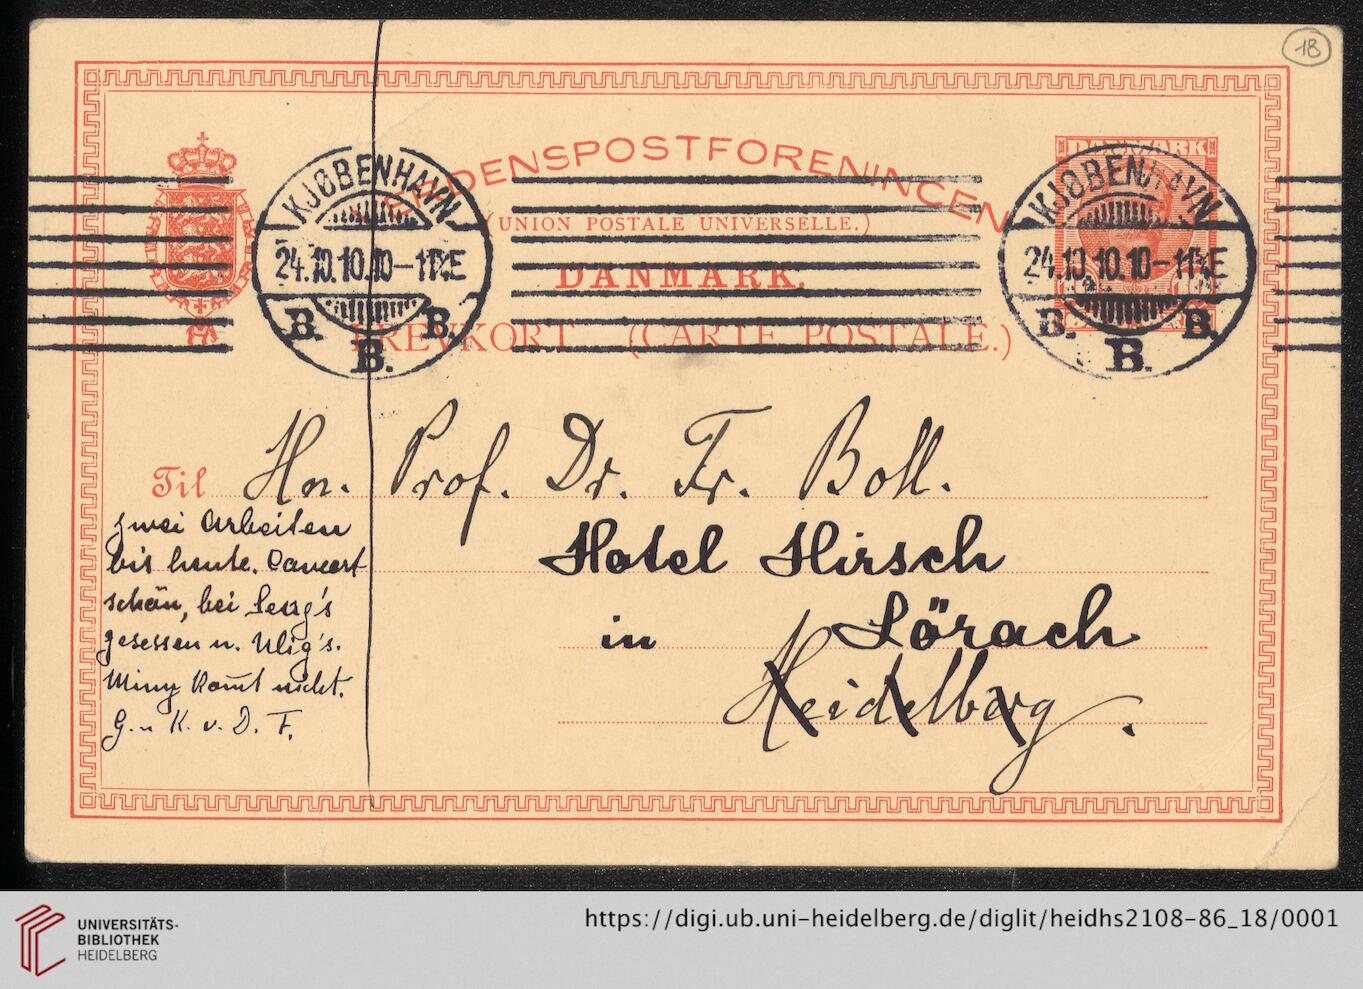 18
VERDENSPOSTFORENINGEN
(UNION POSTALE UNIVERSELLE.)
DANMARK.
BREVKORT (CARTE POSTALE.)
DANMARK
KJØBENHAVN
24.10.10.10-11E
B. B. B.
KJØBENHAVN
24.10.10.10-11E
B. B. B.
Til Hn. Prof. Dr. Fr. Boll.
Hotel Hirsch
in Lörach
Heidelberg.
zwei Arbeiten
bis heute. Concert
schön, bei
gesessen u. Ulig's.
Miny komt nicht.
G. u K. v. D. F.
UNIVERSITÄTS-
BIBLIOTHEK
HEIDELBERG
https://digi.ub.uni-heidelberg.de/diglit/heidhs2108-86_18/0001